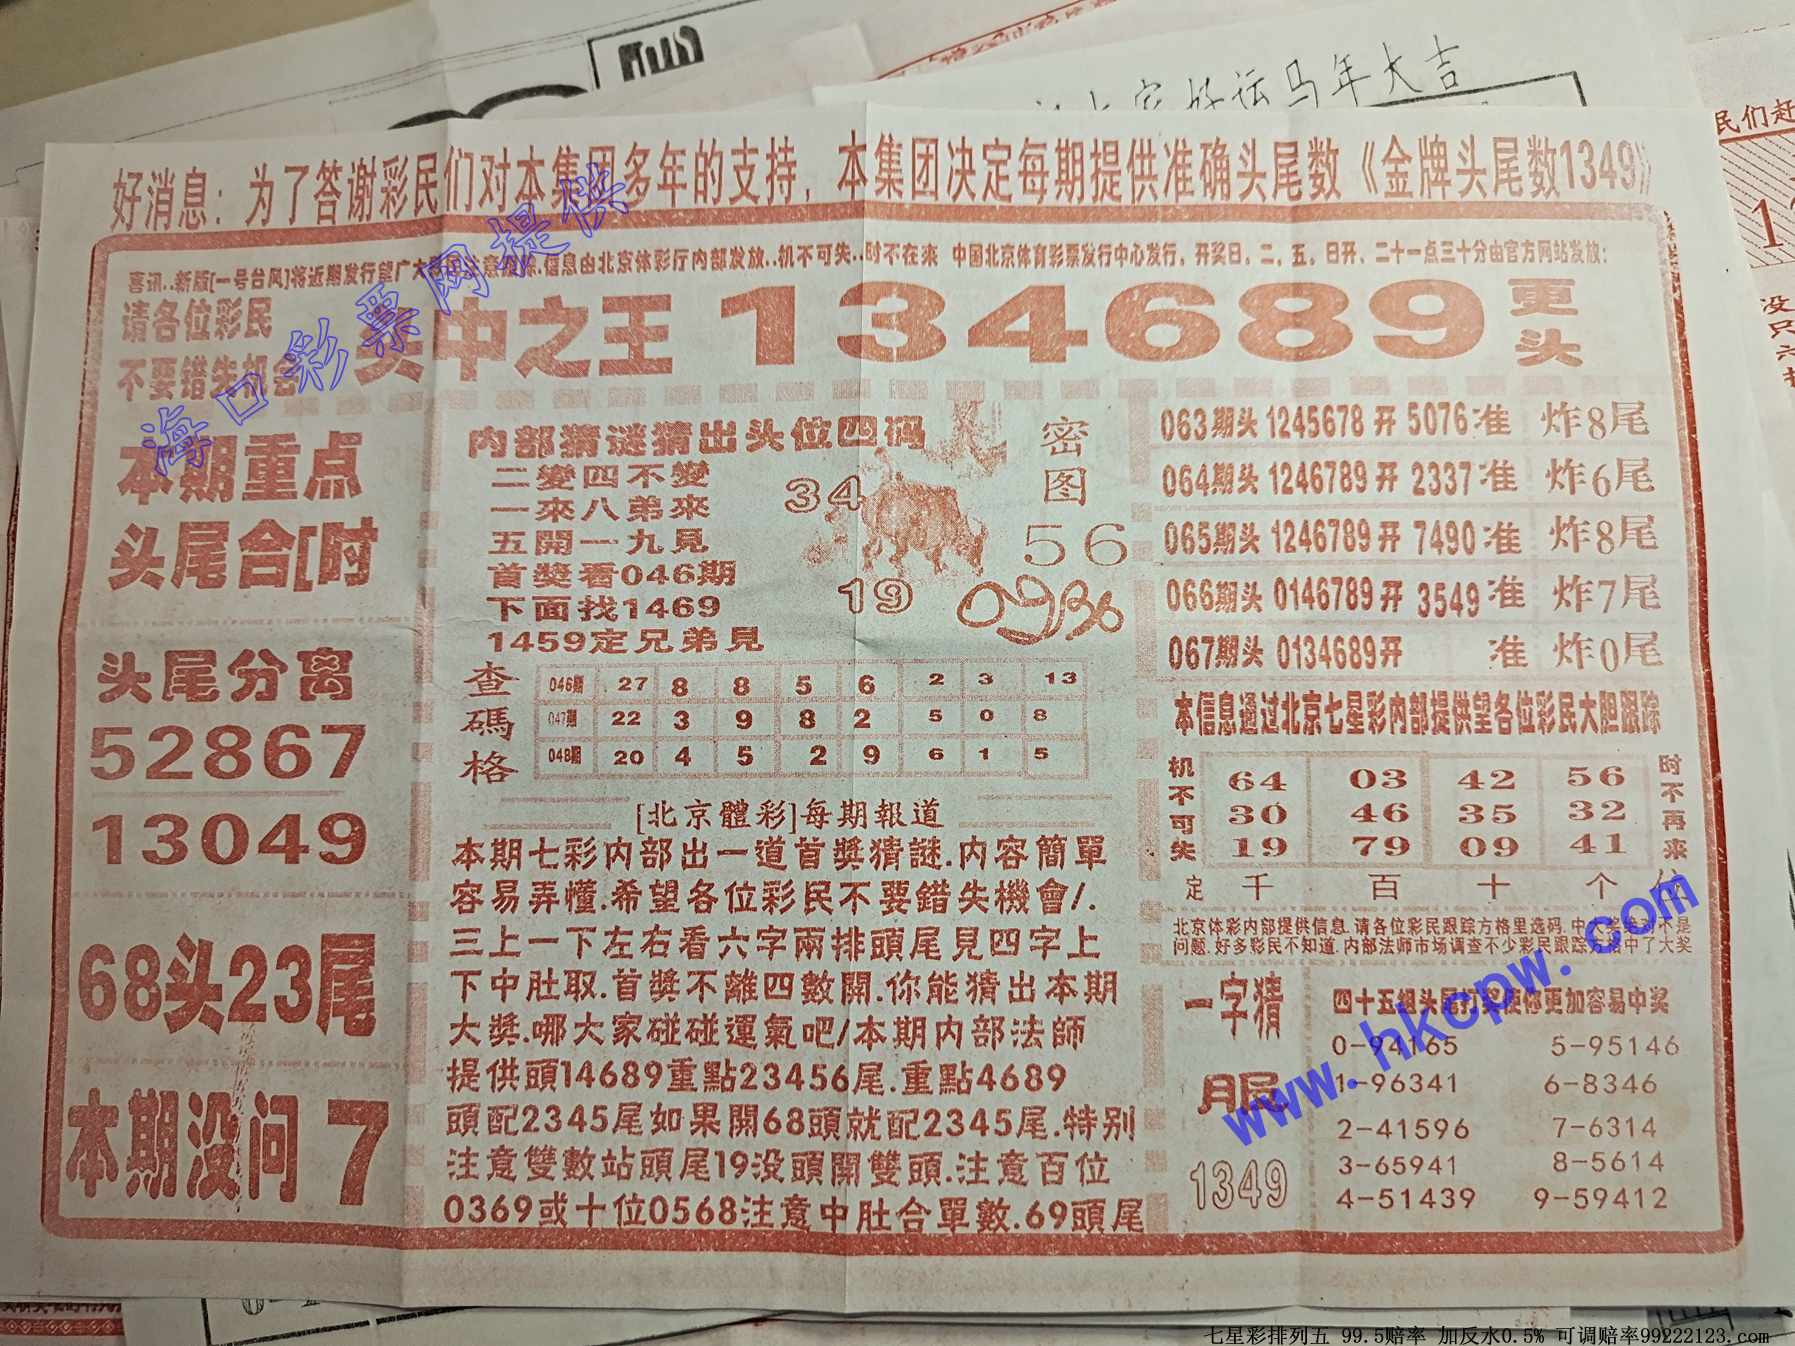 好运马年大吉
好消息：为了答谢彩民们对本集团多年的支持，本集团决定每期提供准确头尾数《金牌头尾数1349》
喜讯..新版[一号台风]将近期发行望广大 信息由北京体彩厅内部发放..机不可失..时不在来 中国北京体育彩票发行中心发行，开奖日，二，五，日开、二十一点三十分由官方网站发放：
请各位彩民
不要错失机会
头中之王 134689 更头
本期重点
头尾合[时
头尾分离
52867
13049
68头23尾
本期没问 7
内部猜谜猜出头位四码
二變四不變
一來八弟來
五開一九見
首獎看046期
下面找1469
1459定兄弟見
密图
34
56
19
查碼格
046期 27 8 8 5 6 2 3 13
047期 22 3 9 8 2 5 0 8
048期 20 4 5 2 9 6 1 5
[北京體彩]每期報道
本期七彩内部出一道首獎猜謎.内容簡單
容易弄懂.希望各位彩民不要錯失機會/.
三上一下左右看六字兩排頭尾見四字上
下中肚取.首獎不離四數開.你能猜出本期
大獎.哪大家碰碰運氣吧/本期内部法師
提供頭14689重點23456尾.重點4689
頭配2345尾如果開68頭就配2345尾.特别
注意雙數站頭尾19没頭開雙頭.注意百位
0369或十位0568注意中肚合單數.69頭尾
063期头 1245678 开 5076 准 炸8尾
064期头 1246789 开 2337 准 炸6尾
065期头 1246789 开 7490 准 炸8尾
066期头 0146789 开 3549 准 炸7尾
067期头 0134689 开 准 炸0尾
本信息通过北京七星彩内部提供望各位彩民大胆跟踪
机不可失
64 03 42 56
30 46 35 32
19 79 09 41
时不再来
定 千 百 十 个 位
北京体彩内部提供信息.请各位彩民跟踪方格里选码.中大奖绝对不是
问题.好多彩民不知道.内部法师市场调查不少彩民跟踪方格中了大奖
一字猜
1349
四十五组头尾打奖使你更加容易中奖
0-94165 5-95146
1-96341 6-8346
2-41596 7-6314
3-65941 8-5614
4-51439 9-59412
海口彩票网提供
www.hkcpw.com
七星彩排列五 99.5赔率 加反水0.5% 可调赔率99222123.com